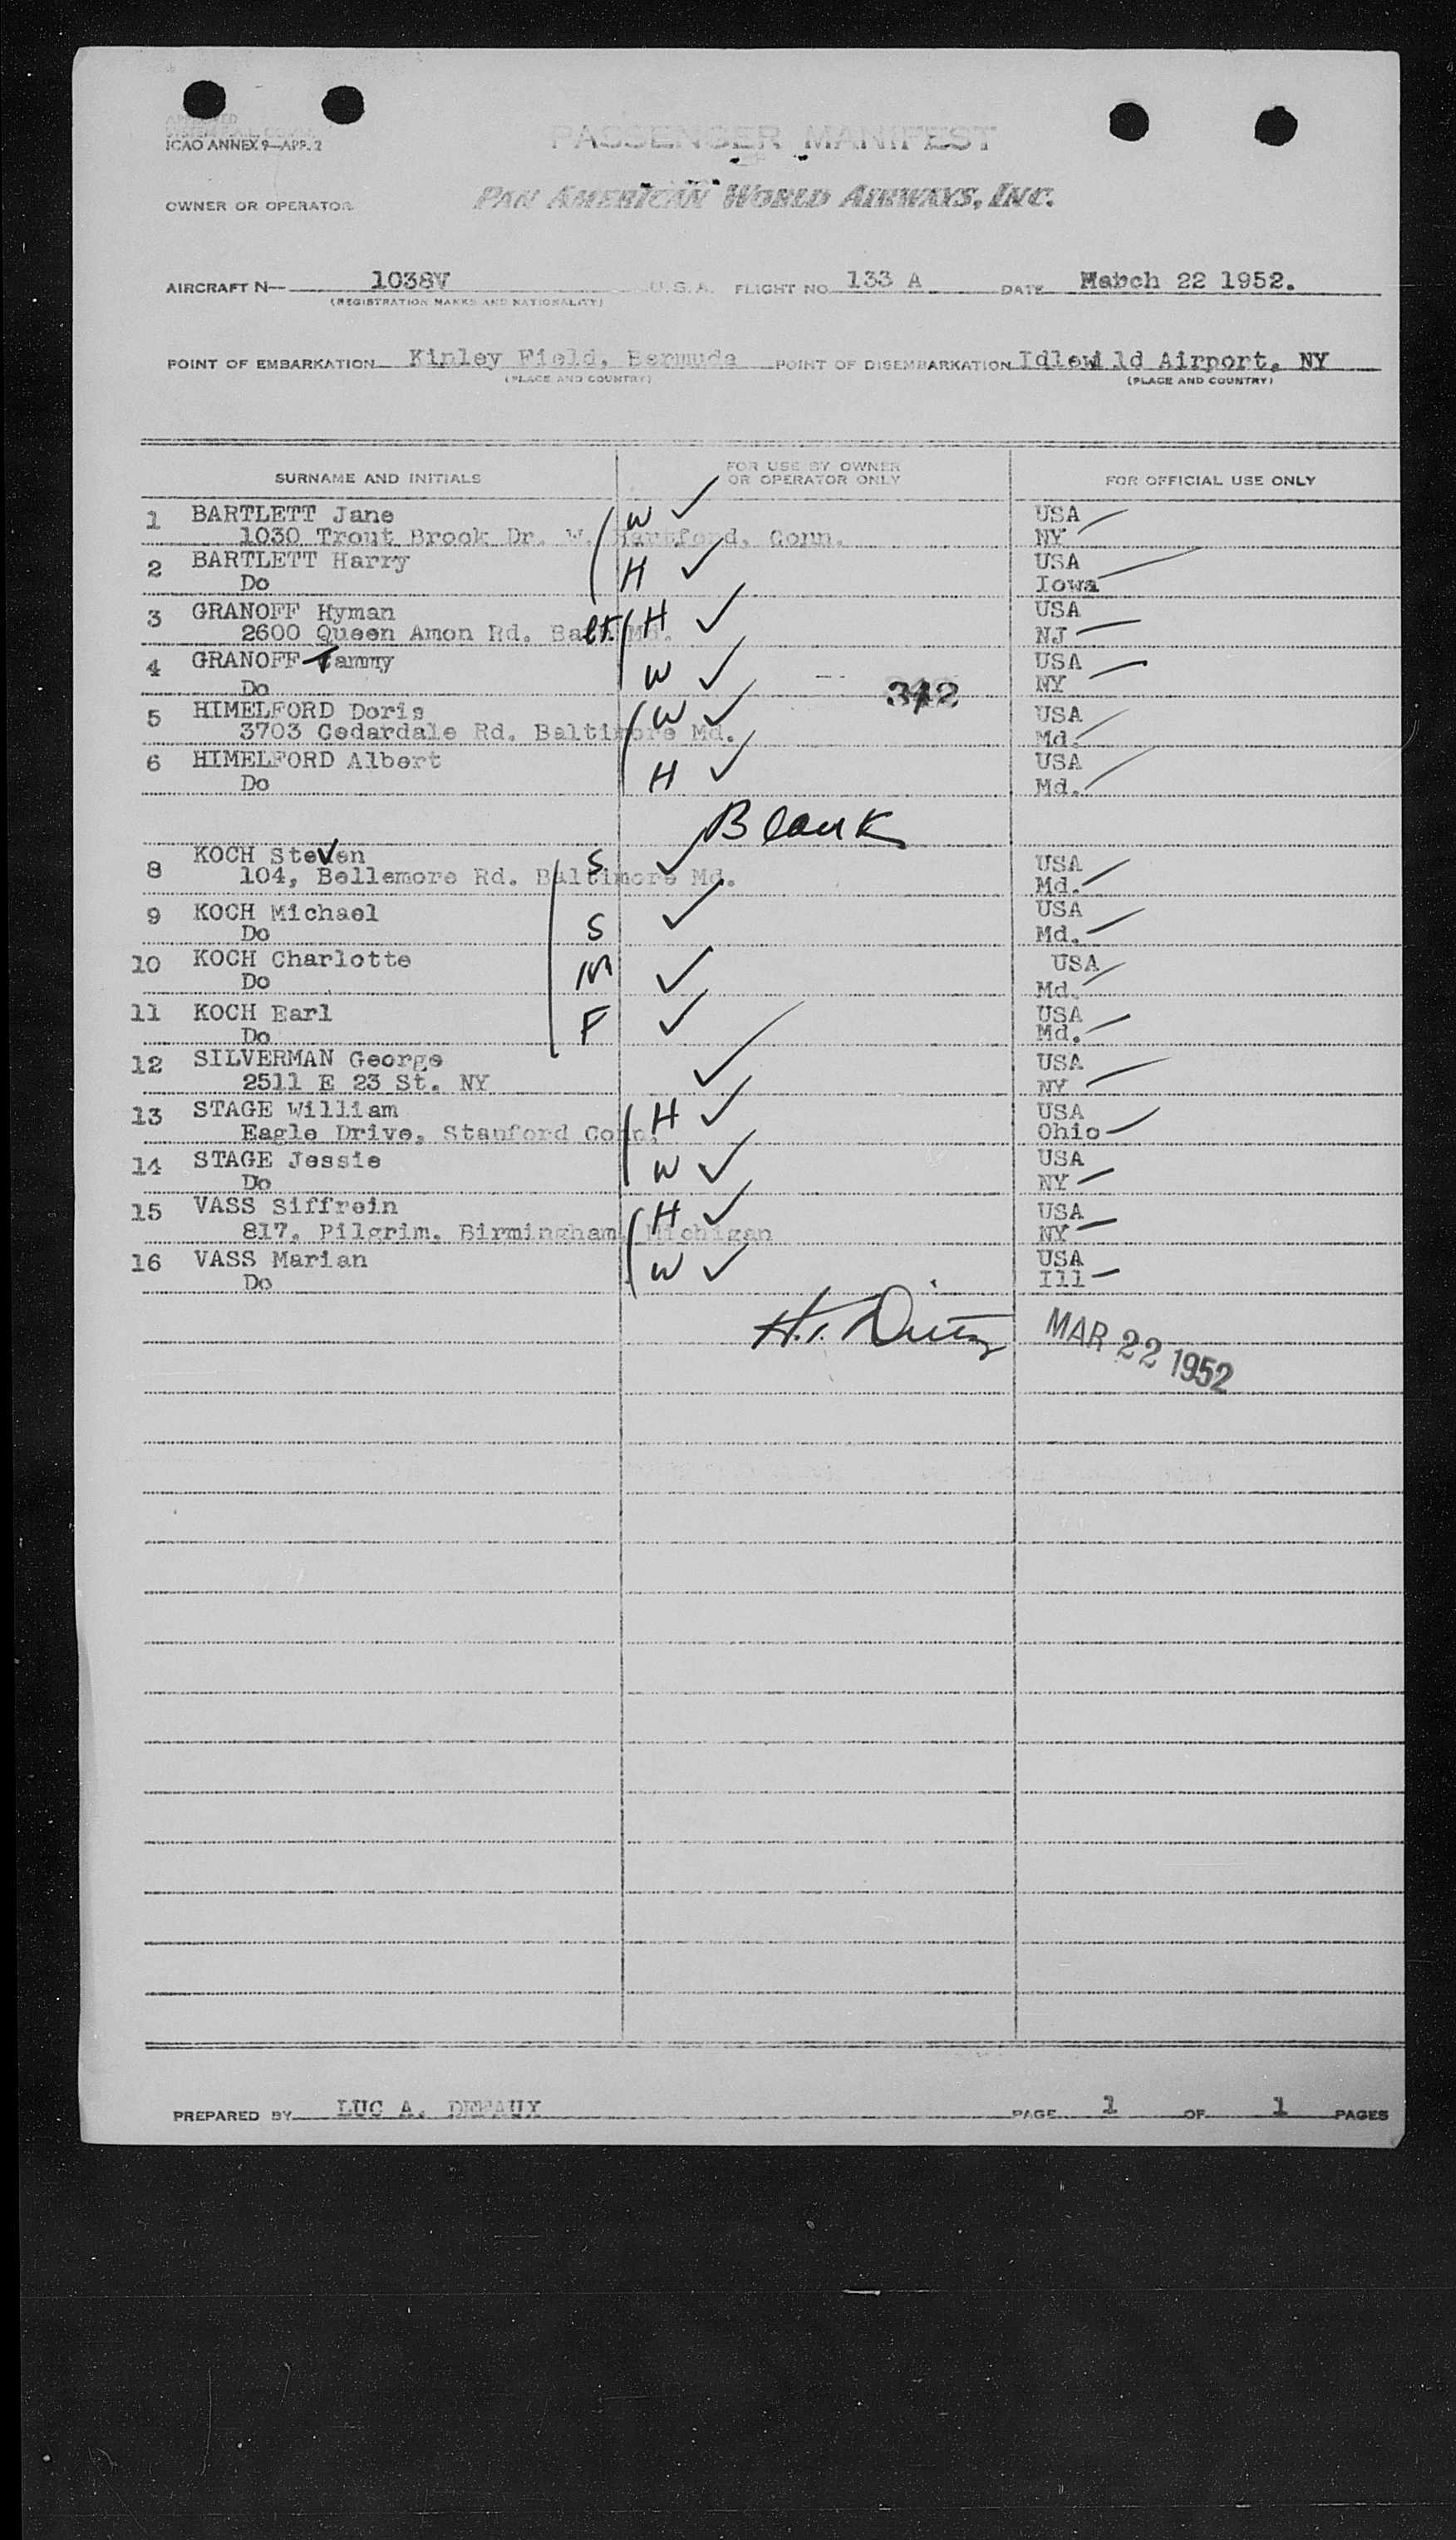 APPROVED
ICAO ANNEX 9—APP. 2
PASSENGER MANIFEST
OWNER OR OPERATOR PAN AMERICAN WORLD AIRWAYS, INC.
AIRCRAFT N— 1038V U.S.A. FLIGHT NO. 133 A DATE March 22 1952.
(REGISTRATION MARKS AND NATIONALITY)
POINT OF EMBARKATION Kinley Field, Bermuda POINT OF DISEMBARKATION Idlewild Airport, NY
(PLACE AND COUNTRY) (PLACE AND COUNTRY)
SURNAME AND INITIALS FOR USE BY OWNER OR OPERATOR ONLY FOR OFFICIAL USE ONLY
1 BARTLETT Jane W ✓ USA
1030 Trout Brook Dr. W. Hartford, Conn. NY
2 BARTLETT Harry H ✓ USA
Do Iowa
3 GRANOFF Hyman H ✓ USA
2600 Queen Amon Rd. Balt. Md. NJ
4 GRANOFF Tammy W ✓ USA
Do 312 NY
5 HIMELFORD Doris W ✓ USA
3703 Cedardale Rd. Baltimore Md. Md.
6 HIMELFORD Albert H ✓ USA
Do Md.
Blank
8 KOCH Steven S ✓ USA
104, Bellemore Rd. Baltimore Md. Md.
9 KOCH Michael S ✓ USA
Do Md.
10 KOCH Charlotte M ✓ USA
Do Md.
11 KOCH Earl F ✓ USA
Do Md.
12 SILVERMAN George ✓ USA
2511 E 23 St. NY NY
13 STAGE William H ✓ USA
Eagle Drive, Stanford Conn. Ohio
14 STAGE Jessie W ✓ USA
Do NY
15 VASS Siffrein H ✓ USA
817, Pilgrim, Birmingham, Michigan NY
16 VASS Marian W ✓ USA
Do Ill
MAR 22 1952
PREPARED BY LUC A. DEPAUX PAGE 1 OF 1 PAGES